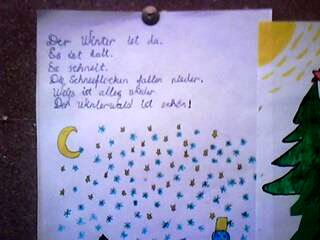 Der Winter ist da.
Es ist kalt.
Es schneit.
Die Schneeflocken fallen nieder.
Weiß ist alles wieder.
Der Winterwald ist schön!